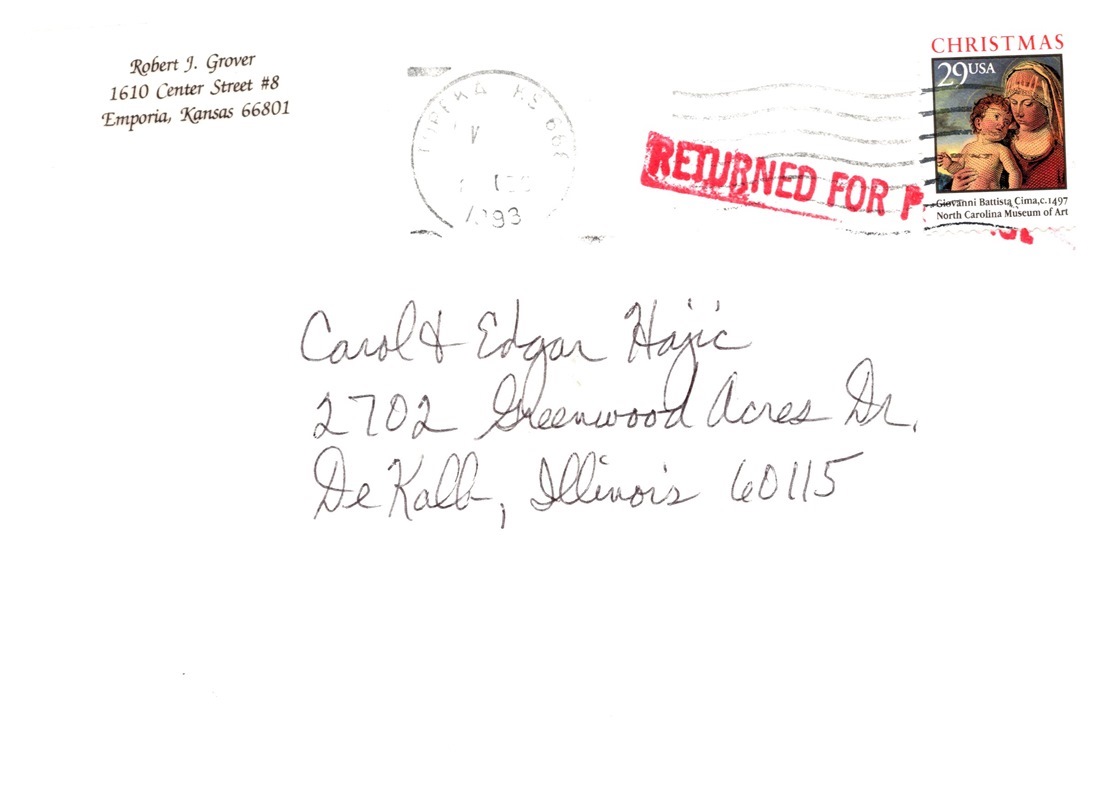 Robert J. Grover
1610 Center Street #8
Emporia, Kansas 66801
TOPEKA KS 666
1993
RETURNED FOR
CHRISTMAS
29USA
Giovanni Battista Cima,c.1497
North Carolina Museum of Art
Carol & Edgar Hajic
2702 Greenwood Acres Dr.
DeKalb, Illinois 60115